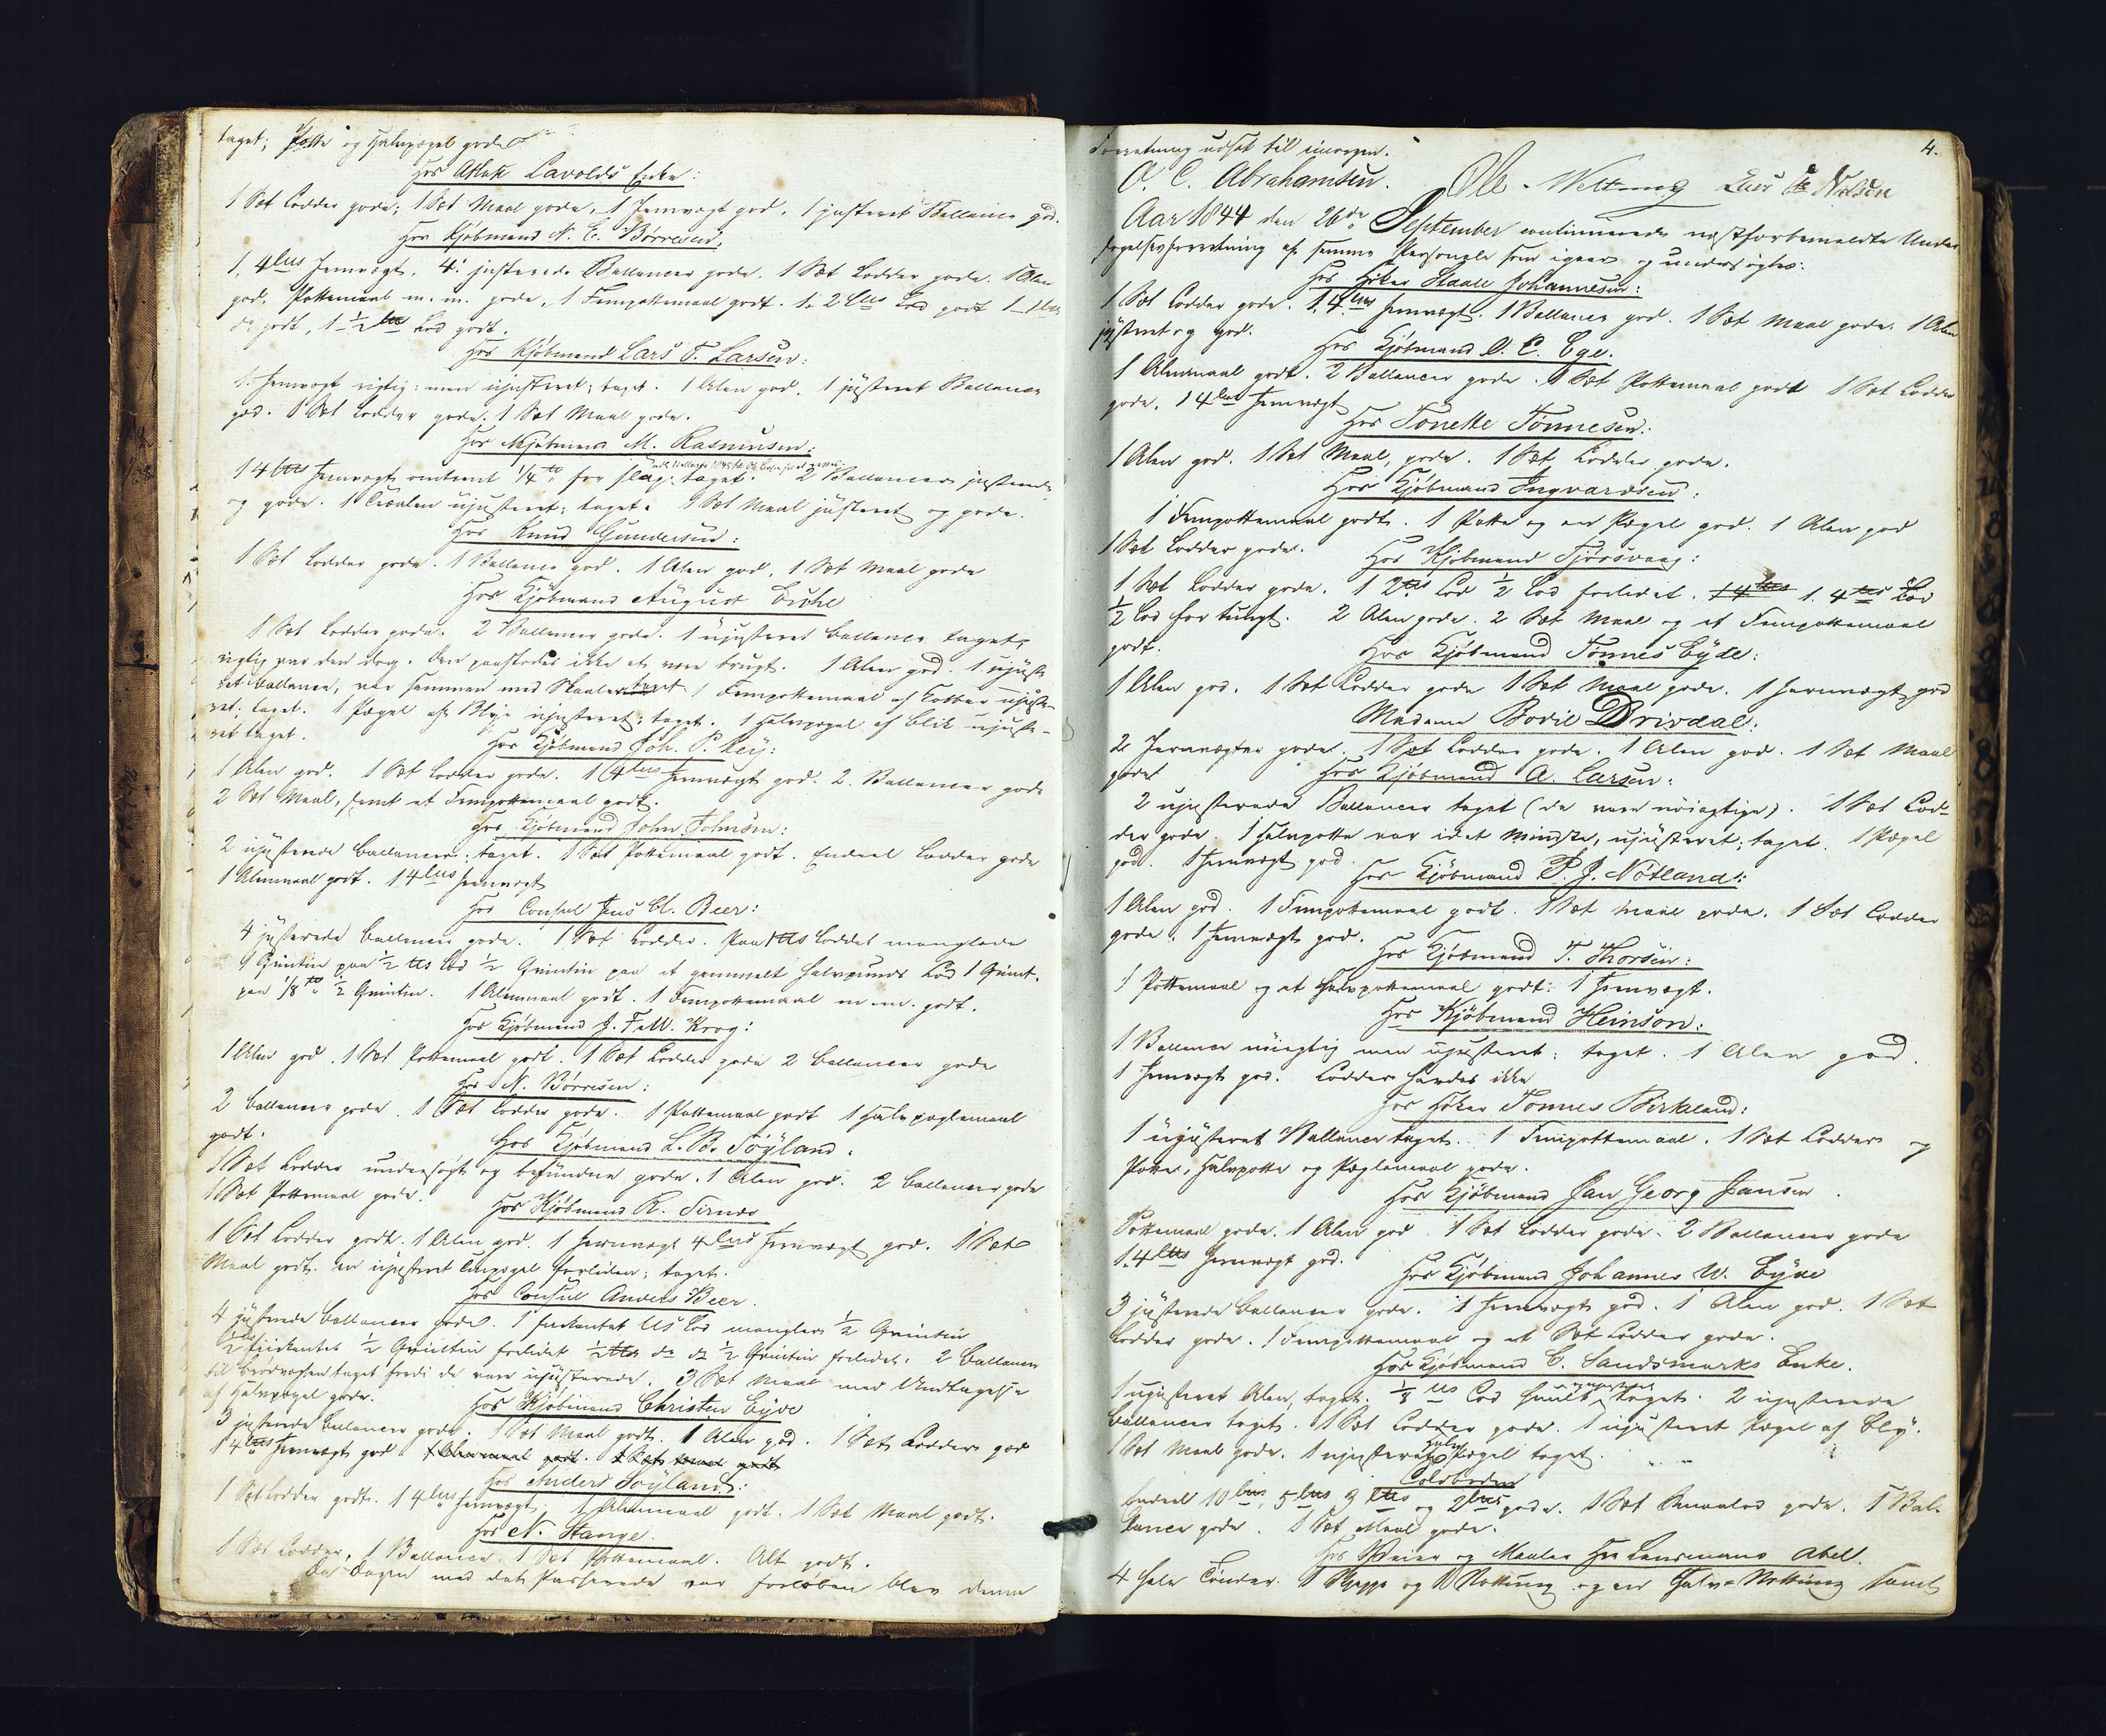 taget; Potte og Halvpægel gode
Hos Atlak Lavolds Enke:
1 Sæt Lodder gode; 1 Sæt Maal gode, 1 Jernvægt god, 1 justeret Ballance god.
Hos Kjøbmand N. E. Børresen;
1, 4 Jernvægt. 4 justerede Ballancer gode. 1 Sæt Lodder gode. 1 Alen
god. Pottemaal m. m. gode, 1 Fempottemaal godt. 1. 2 Lod godt 1-1
do godt, 1-½ Lod godt.
Hos Kjøbmand Lars T. Larsen:
1 Jernvægt rigtig: men ujusteret; taget. 1 Alen god. 1 justeret Ballance
god. 1 Sæt Lodder gode. 1 Sæt Maal gode.
Hos Kjøbmand M. Rasmusen:
1 4 Jernvægt omtrent ¼ for slap: taget. 2 Ballancer justerede
og gode. 1 ujusteret; taget. 1 Sæt Maal justeret og gode.
Hos Knud Gundersen:
1 Sæt Lodder gode. 1 Ballance god. 1 Alen god, 1 Sæt Maal gode
Hos Kjøbmand August
1 Sæt Lodder gode. 2 Ballancer gode. 1 ujusteret ballance taget,
rigtig var den dog. Den paastodes ikke at være brugt. 1 Alen god. 1 ujuste
ret ballance, var sammen med Skaaler taget 1 Fempottemaal af Kobber ujuste-
ret; taget. 1 Pægel af Blye ujusteret; taget. 1 Halvpægel af blik ujuste-
ret taget.
Hos Kjøbmand Joh. P. Rey:
1 Alen god. 1 Sæt Lodder gode. 1 4 Jernvægt god. 2. Ballancer gode
2 Sæt Maal, samt et Fempottemaal godt.
Hos Kjøbmand John Johnsen:
2 ujusterede ballancer: taget. 1 Sæt Pottemaal godt. Endeel Lodder gode
1 Alenmaal godt. 1 4 Jernvægt
Hos Consul Jens A. Beer:
4 justerede ballancer gode. 1 Sæt Lodder. Paa Loddet manglede
1 Qvintin paa ½ Lod ½ Qvintin paa et gammelt Halvpunds Lod 1 Qvint.
paa 1/8 ½ Qvintin. 1 Alenmaal godt. 1 Fempottemaal m. m. godt.
Hos Kjøbmand J. F. W. Krog:
1 Alen god. 1 Sæt Pottemaal godt. 1 Sæt Lodder gode 2 ballancer gode
Hos N. Børresen:
2 ballancer gode. 1 Sæt Lodder gode. 1 Pottemaal godt 1 Halvpæglemaal
godt.
Hos Kjøbmand L. B. Søyland.
1 Sæt Lodder undersøgt og befundne gode. 1 Alen god. 2 ballancer gode
1 Sæt Pottemaal gode.
Hos Kjøbmand R. Sirnes
1 Sæt Lodder godt. 1 Alen god. 1 Jernvægt 4 Jernvægt god. 1 Sæt
Maal godt. en ujusteret forliden; taget.
Hos Consul Anders Beer.
4 justerede ballancer gode. 1 Lod mangler ½ Qvintin
½ ½ Qvintin forlidet ½ do do ½ Qvintin forlidet. 2 ballancer
til taget fordi de vare ujusterede. 3 Sæt Maal med Undtagelse
af Halvpægel gode.
Hos Kjøbmand Christen Eyde
3 justerede ballancer gode. 1 Sæt Maal godt. 1 Alen god. 1 Sæt Lodder god
1 4 Jernvægt god 1 Alenmaal godt. 1 Sæt maal godt
Hos Anders Søyland:
1 Sæt Lodder godt. 1 4 Jernvægt, 1 Alenmaal godt. 1 Sæt Maal godt.
Hos N. Stange.
1 Sæt Lodder, 1 Ballance. 1 Sæt Pottemaal. Alt godt.
Da Dagen med det Passerede var forløben blev denne
4.
Forretning udsat til imorgen.
O. C. Abrahamsen. Ole Lars Nielsen
Aar 1844 den 26de September continuerede næstforbemeldte Under
søgelsesforretning af samme Personale som igaar og undersøgtes:
Hos Høker Staale Johannesen:
1 Sæt Lodder gode. 1. 4 Jernvægt. 1 Ballance god. 1 Sæt Maal gode. 1 Alen
justeret og god.
Hos Kjøbmand O. E. Ege.
1 Alenmaal godt. 2 Ballancer gode. 1 Sæt Pottemaal godt 1 Sæt Lodder
gode. 1 4 Jernvægt
Hos Tonette Tonnesen:
1 Alen god. 1 Sæt Maal, gode. 1 Sæt Lodder gode.
Hos Kjøbmand Ingvardsen:
1 Fempottemaal godt. 1 Potte og en Pægel god. 1 Alen god
1 Sæt Lodder gode.
Hos Kjøbmand Tjørsvaag:
1 Sæt Lodder gode. 1 2 Lod ½ Lod forlidet. 1 4 1. 4 Lod
½ Lod for tungt. 2 Alen gode. 2 Sæt Maal og et Fempottemaal
godt.
Hos Kjøbmand Tønnes Eyde:
1 Alen god. 1 Sæt Lodder gode 1 Sæt Maal gode. 1 Jernvægt god
Madame Bodil Drivdal:
2 Jernvægter gode. 1 Sæt Lodder gode. 1 Alen god. 1 Sæt Maal
godt
Hos Kjøbmand A. Larsen:
2 ujusterede Ballancer taget (de vare nøiagtige). 1 Sæt Lod-
der gode. 1 Halvpotte var idet mindste, ujusteret; taget. 1 Pægel
god. 1 Jernvægt god.
Hos Kjøbmand P. J. Nøtland:
1 Alen god. 1 Fempottemaal godt. 1 Sæt Maal gode. 1 Sæt Lodder
gode. 1 Jernvægt god.
Hos Kjøbmand T. Thorsen:
1 Pottemaal og et Halvpottemaal godt: 1 Jernvægt.
Hos Kjøbmand Heinson:
1 Ballance nøiagtig men ujusteret: taget. 1 Alen god.
1 Jernvægt god. Lodder havdes ikke
Hos Høker Tonnes Birkeland:
1 ujusteret Ballance taget. 1 Fempottemaal. 1 Sæt Lodder og
Potte, Halvpotte og Pæglemaal gode.
Hos Kjøbmand Jan Georg Jansen.
Pottemaal gode. 1 Alen god 1 Sæt Lodder gode. 2 Ballancer gode
1. 4 Jernvægt god.
Hos Kjøbmand Johannes W. Eyde
3 justerede ballancer gode. 1 Jernvægt god. 1 Alen god. 1 Sæt
Lodder gode. 1 Fempottemaal og et Sæt Lodder gode.
Hos Kjøbmand C. Sandsmarks Enke.
1 ujusteret Alen, taget. 1/8 Lod taget. 2 ujusterede
ballancer taget. 1 Sæt Lodder gode. 1 ujusteret Pægel af Bly.
1 Sæt Maal gode. 1 ujusteret Halv Pægel taget.
Toldboden
Endeel 10, 5, 3 og 2 gode. 1 Sæt gode. 1 Bal-
lance gode. 1 Sæt Maal gode.
Hos Veier og Maaler Hr Lensmand Abell.
4 hele Tønder. 1 Skjeppe og 1 Notting og en Halv-Notting samt